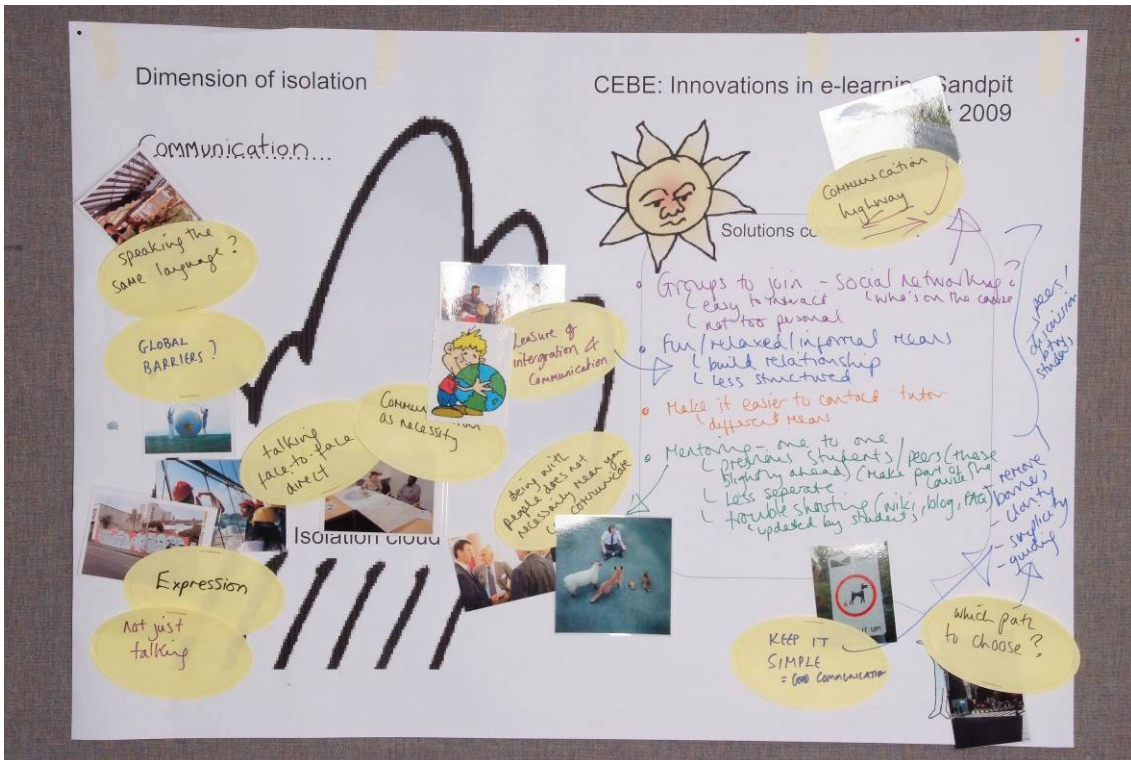 Dimension of isolation
Communication....
CEBE: Innovations in e-learning Sandpit
2009
speaking the
same language?
GLOBAL
BARRIERS?
talking
face-to-face
direct
as necessity
intergration &
Communication
being with
people does not
necessarily mean you
communicate
Isolation cloud
Expression
not just
talking
Communication
highway
Solutions
Groups to join - social networking?
easy to interact
who's on the course
not too personal
Fun/relaxed/informal means
build relationship
less structured
Make it easier to contact tutor
different means
Mentoring - one to one
previous students/peers (those
slightly ahead) (make part of the
course)
less seperate
trouble shooting (wiki, blog, FAQ)
updated by students
peers!
discussion
btw
students
- remove
barriers
- clarity
- simplicity
- guiding
KEEP IT
SIMPLE
= GOOD COMMUNICATION
which path
to choose?